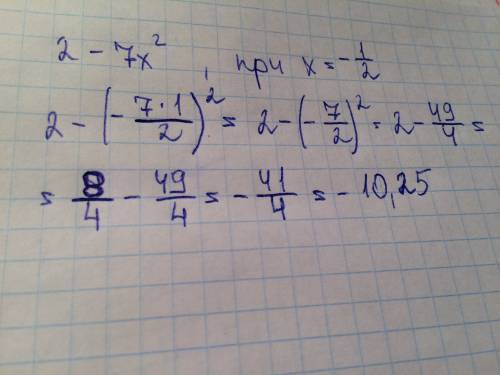 2 - 7x², при x = -1/2
2 - (-7·1/2)² = 2 - (-7/2)² = 2 - 49/4 =
= 8/4 - 49/4 = -41/4 = -10,25